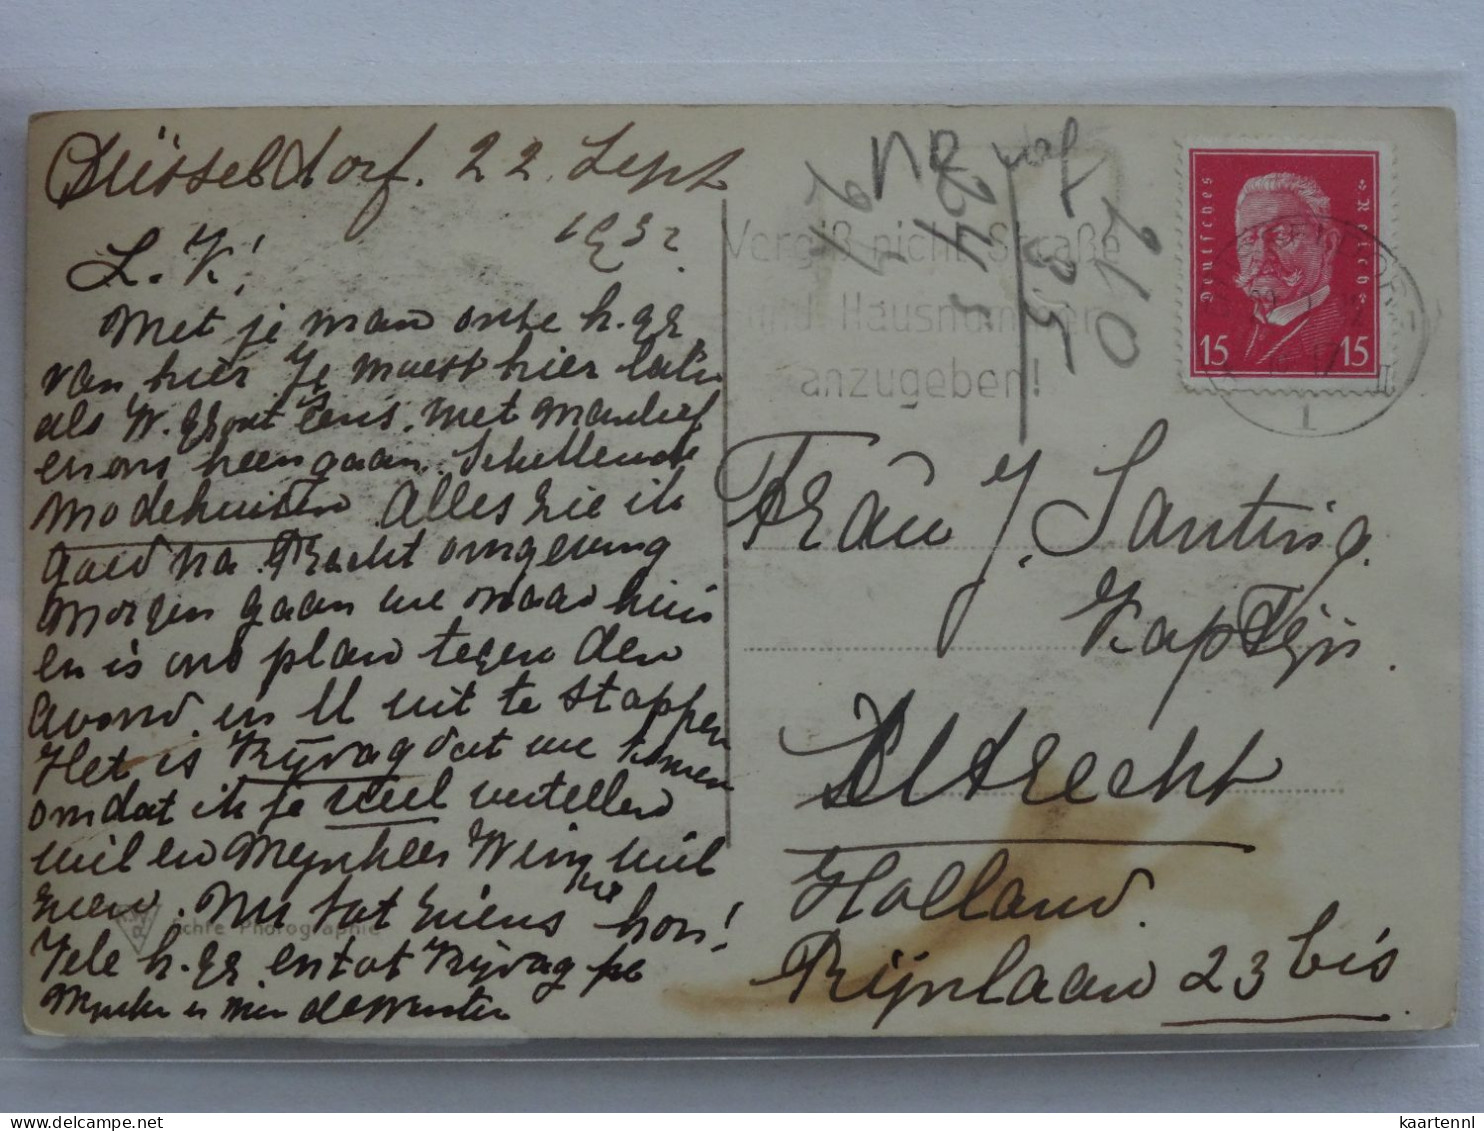 Düsseldorf. 22 Sept
1932
L. K!
Met je man onze h. gr
van hier Je moest hier
als W. eens. met
en ons heen gaan.
Modehuizen Alles zie ik
goed na. Pracht omgeving
Morgen gaan we naar huis
en is ons plan tegen den
avond in U uit te stappen
Het is Vrijdag dat we komen
omdat ik je veel vertellen
wil en Mijnheer Wim wil
zien. Nu tot ziens hoor!
Vele h. gr en tot Vrijdag
Echte Photographie
Vergiß nicht Straße
und Hausnummer
anzugeben!
Deutsches Reich
15 15
NR
2445
Frau J. Santing
Kapteijn.
Utrecht
Holland.
Rijnlaan 23 bis
kaartennl